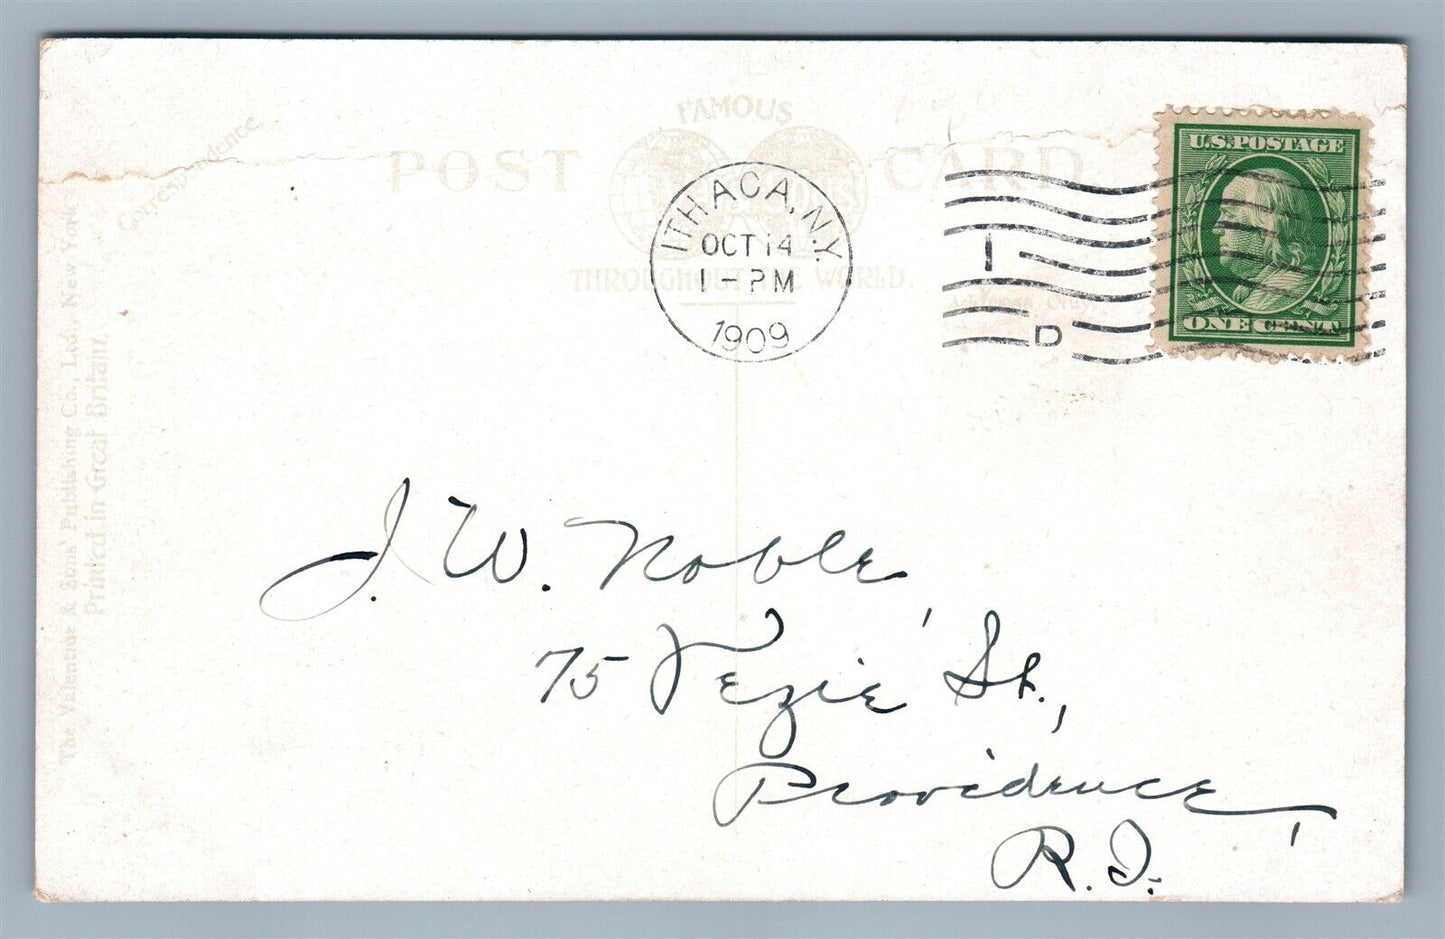 Correspondence
FAMOUS
POST CARD
THROUGHOUT THE WORLD.
ITHACA, N.Y.
OCT 14
1-PM
1909
1
D
U.S. POSTAGE
ONE CENT
The Valentine & Sons' Publishing Co., Ltd., New York.
Printed in Great Britain.
J. W. Noble,
75 Vezie St.,
Providence,
R. I.